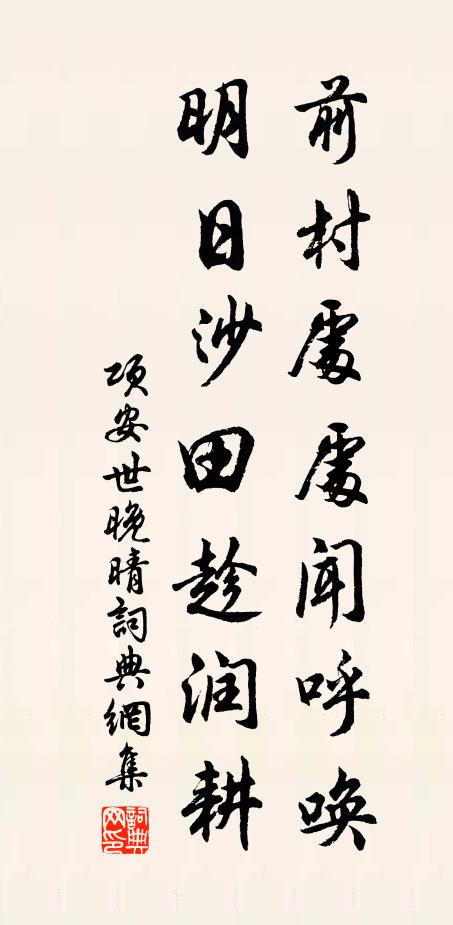 前村處處聞呼唤
明日沙田趁润耕
项安世晚晴詞典網集
詞典网印